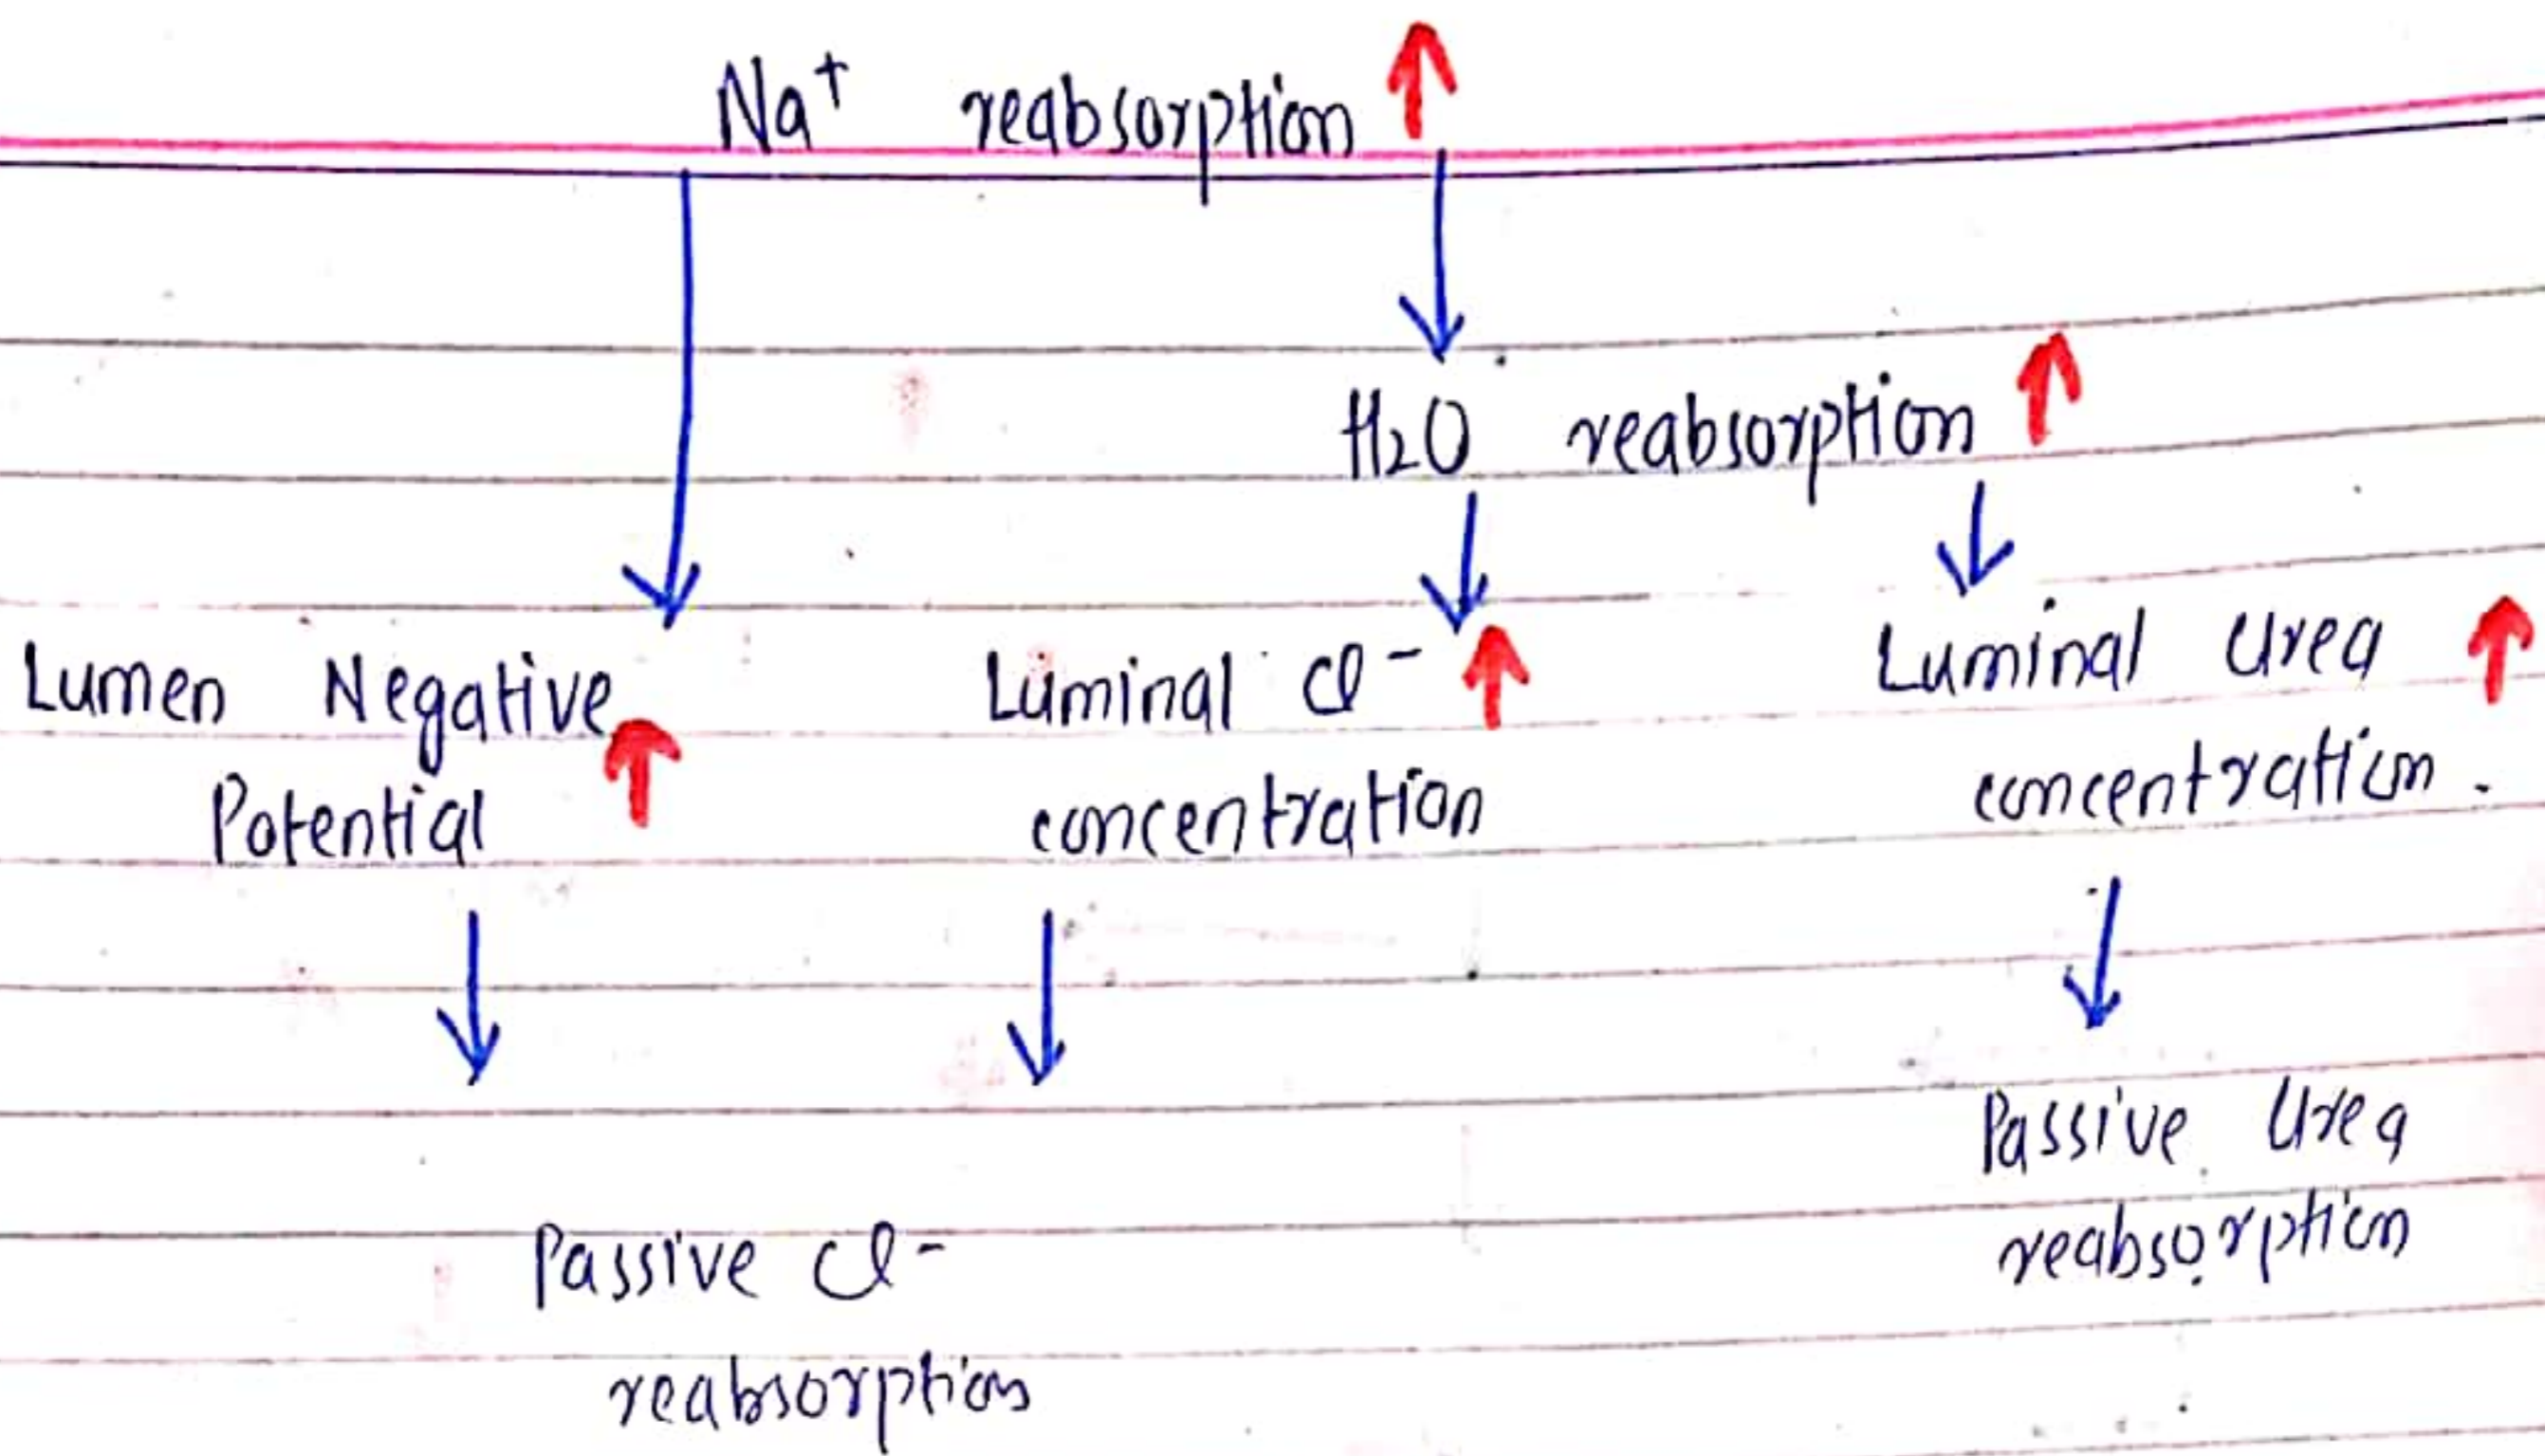 Na⁺ reabsorption ↑
H₂O reabsorption ↑
Lumen Negative ↑
Potential
Luminal Cl⁻ ↑
concentration
Luminal Urea ↑
concentration.
Passive Cl⁻
reabsorption
Passive Urea
reabsorption